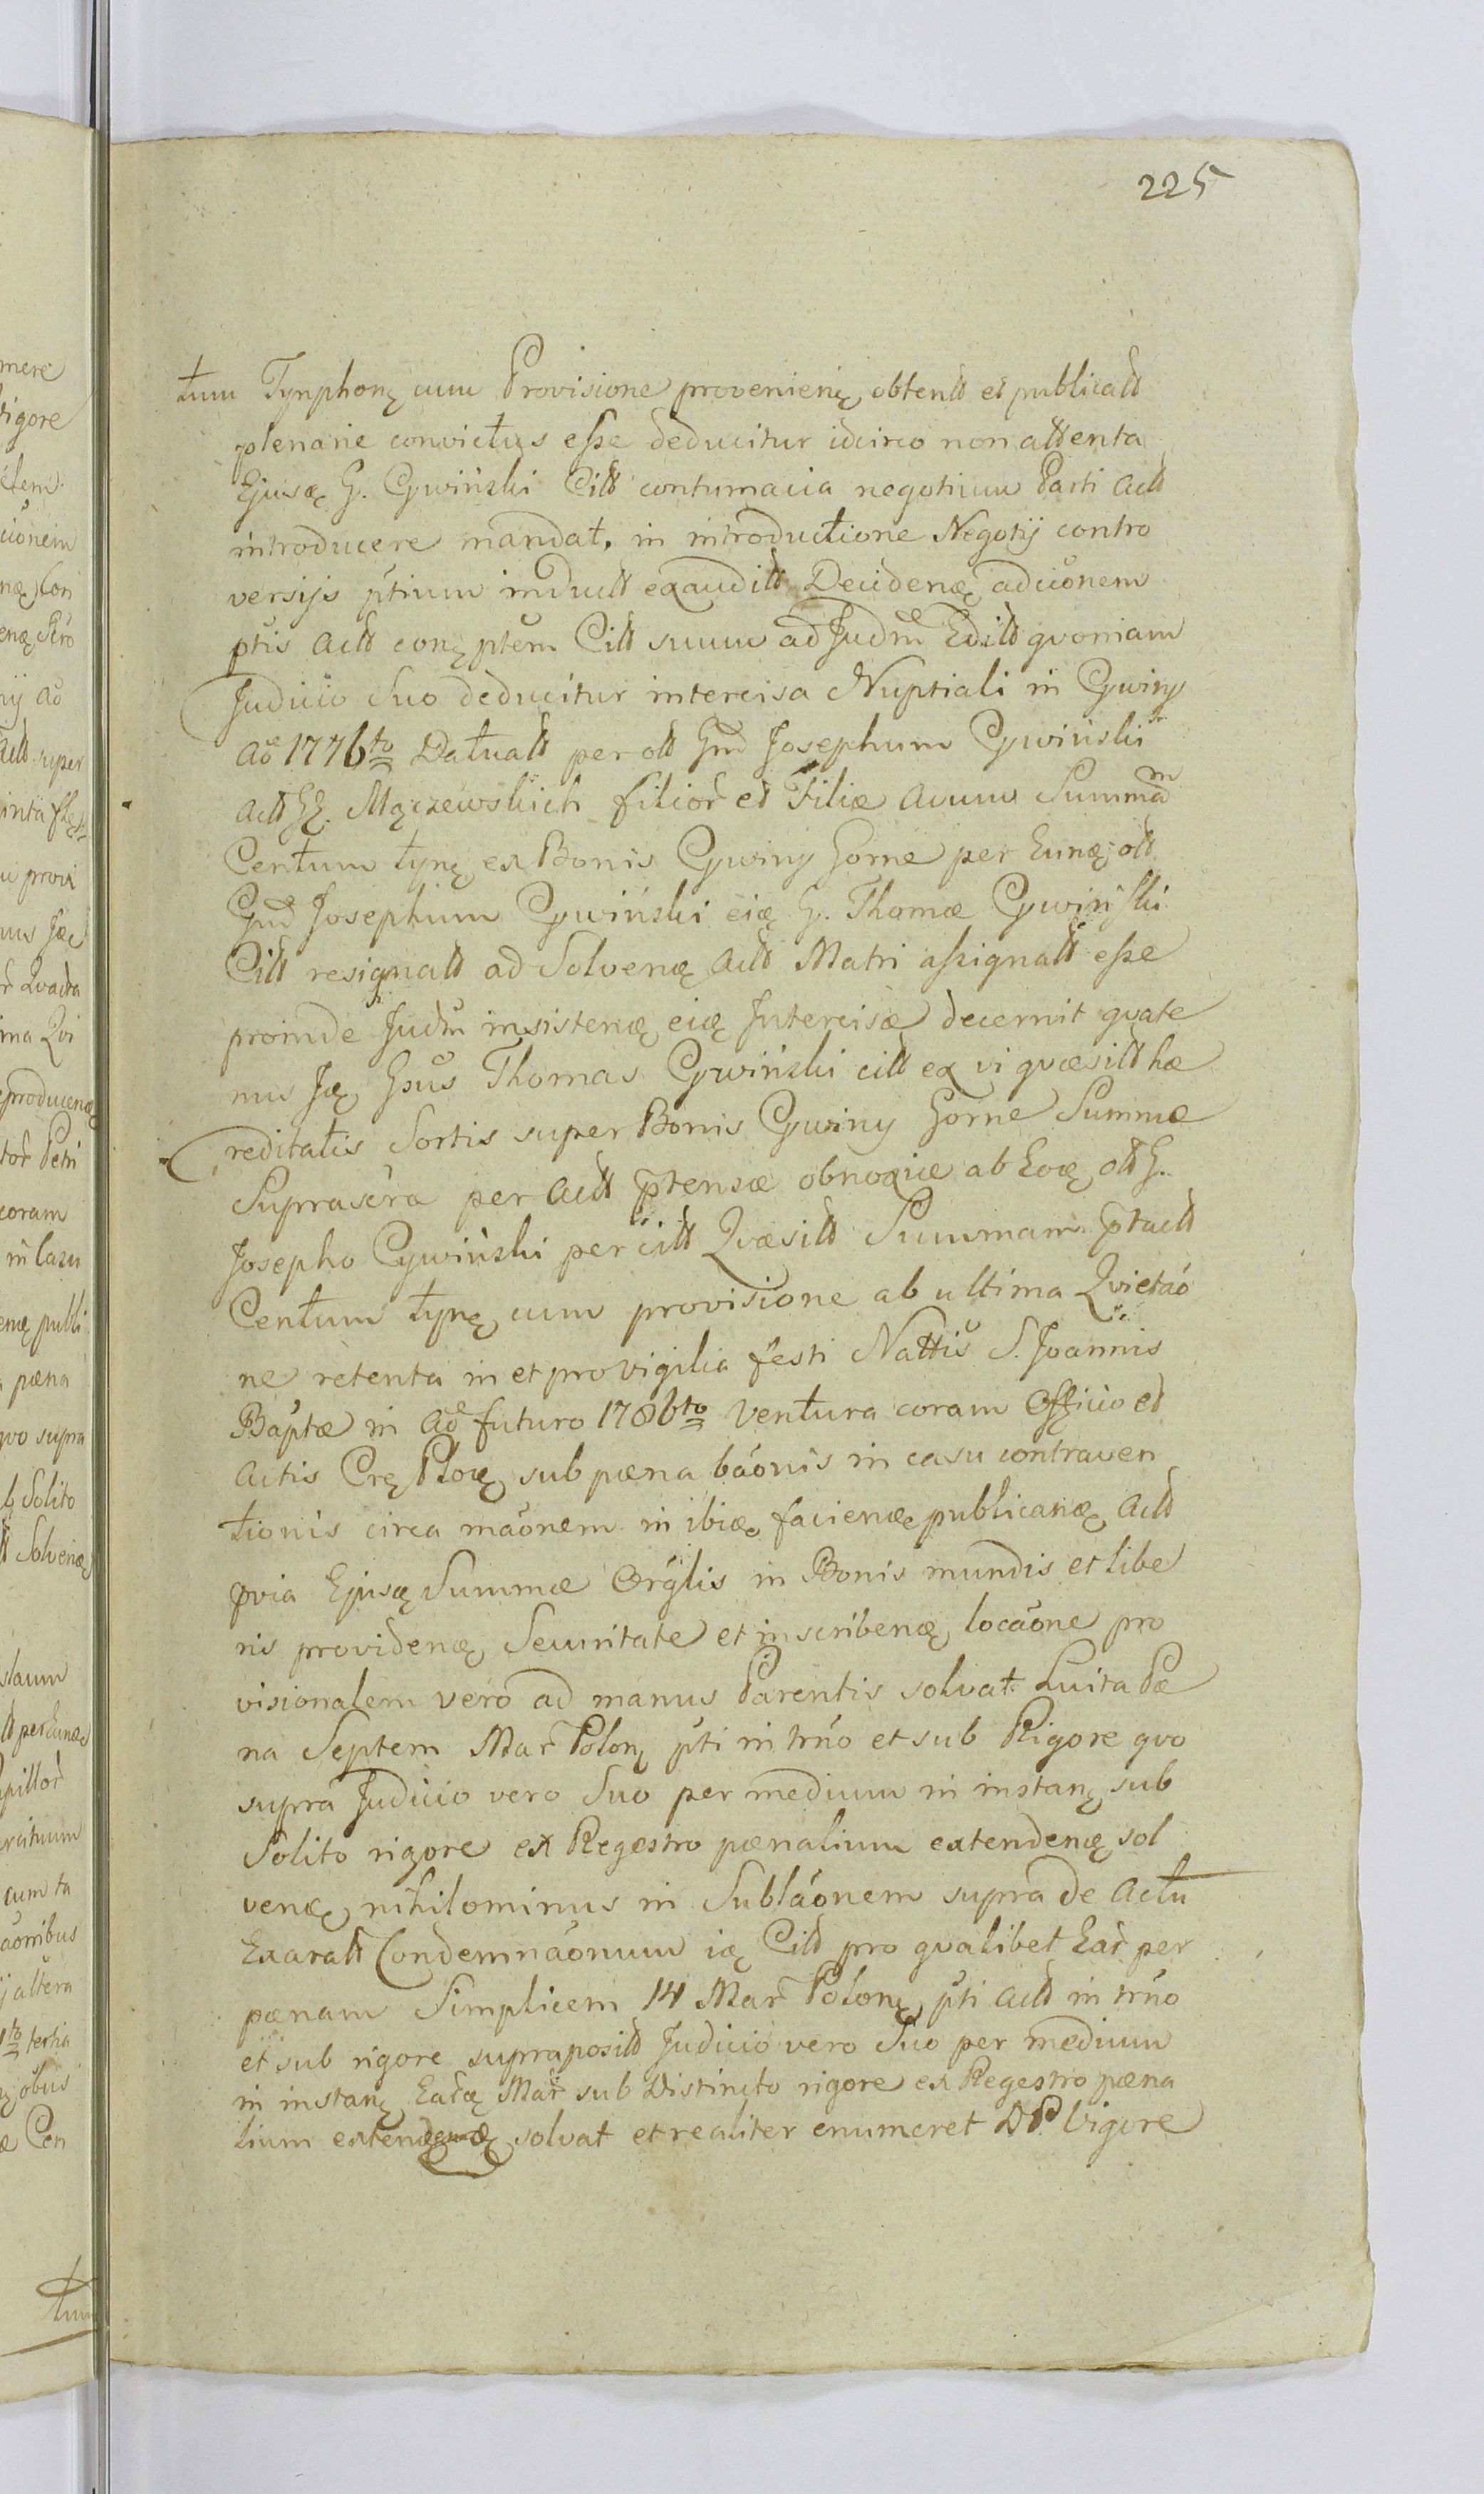 225
tum Tynphonę cum Provisione provenienę obtentt et publicatt
plenarie convictus esse deducitur idcirco non attenta
Ejusdę G. Cywiński Citt contumacia negotium Parti Actt
introducere mandat. in introductione Negotij contro
versijs ptium inductt exauditt Decidenę aducionem
ptis Actt conę ptem Citt suum ad Judm Editt qvoniam
Judicio Suo deducitur intercisa Nuptiali in Cywiny
Ao 1776to Datuatt per ott Gnd Josephum Cywiński
Actt GG. Mączewskich filior et Filiæ Avum Summam
Centum tynę ex Bonis Cywiny Gorne per Eunę ott
Gnd Josephum Cywiński eię G. Thomæ Cywiński
Citt resignatt ad Solvenę Actt Matri assignatt esse
proinde Judm insistenę eię Intercisæ decernit qvate
nus Ię Gsus Thomas Cywiński citt ex vi qvæsitt hæ
reditatis Sortis super Bonis Cywiny Gorne Summæ
Suprascra per Actt ptensæ obnoxiæ ab Eoę ott G.
Josepho Cywiński per citt Qvæsitt Summam ptactt
Centum tynę cum provisione ab ultima Qvietao
ne retenta in et pro vigilia festi Nattis S. Joannis
Baptæ in Ao futuro 1786to Ventura coram Officio et
Actis Crę Ploę sub pæna baonis in casu contraven
tionis circa maonem in ibię facienę publicanę Actt
qvia Ejusę Summæ Orglis in Bonis mundis et libe
ris providenę Securitate et inscribenę locaone pro
visionalem vero ad manus Parentis solvat Luita Pæ
na Septem Mar Polonę pti in trno et sub Rigore qvo
supra Judicio vero Suo per medium in instanę sub
Solito rigore ex Regestro pænalium extendenę sol
venę nihilominus in Sublaonem supra de Actu
Exaratt Condemnaonum ię Citt pro qvalibet Ear per
pænam Simplicem 14 Mar Polonę pti Actt in trno
et sub rigore supraposítt Judicio vero Suo per medium
in instanę Earę Mar sub Distincto rigore ex Regestro pæna
lium extendenę solvat et realiter enumeret DP. Vigore